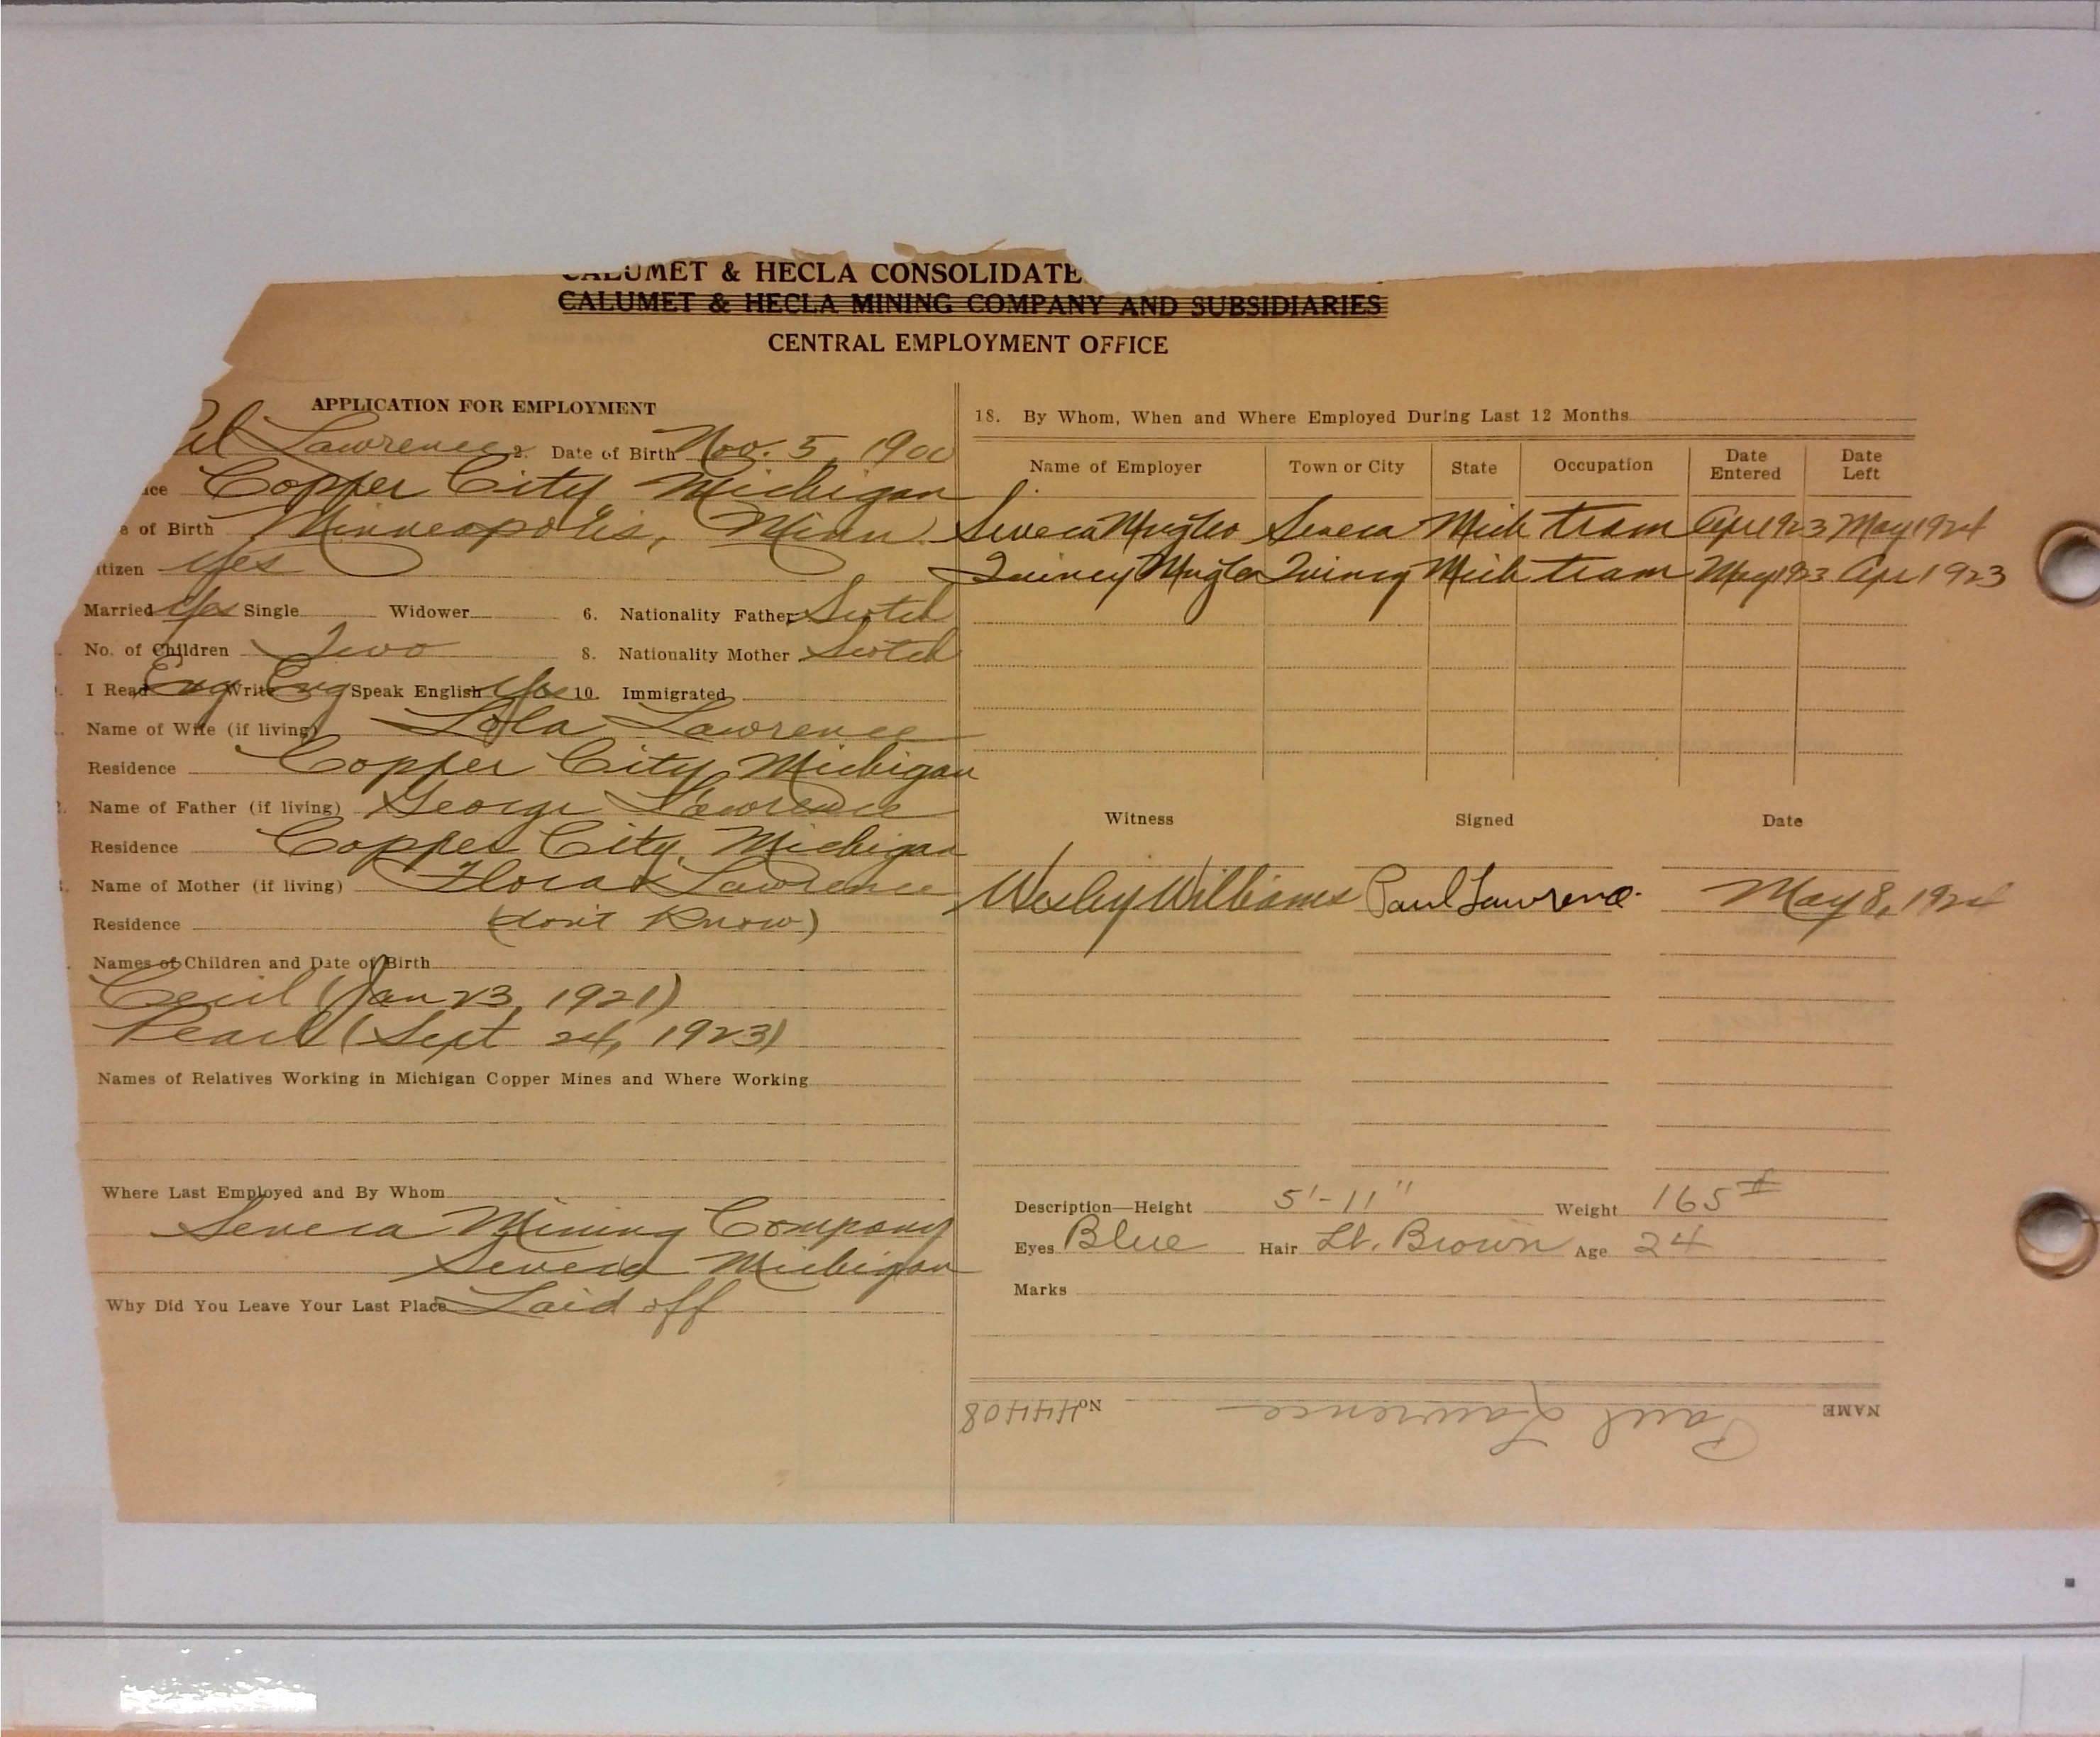 CALUMET & HECLA CONSOLIDATE
CALUMET & HECLA MINING COMPANY AND SUBSIDIARIES
CENTRAL EMPLOYMENT OFFICE
APPLICATION FOR EMPLOYMENT
ul Lawrence 2. Date of Birth Nov. 5, 1900
ce Copper City, Michigan
e of Birth Minneapolis, Minn.
itizen Yes
Married Yes Single Widower 6. Nationality Father Scotch
No. of Children Two 8. Nationality Mother Scotch
I Read Eng Write Eng Speak English Yes 10. Immigrated
Name of Wife (if living) Lola Lawrence
Residence Copper City, Michigan
Name of Father (if living) George Lawrence
Residence Copper City, Michigan
Name of Mother (if living) Flora Lawrence
Residence (don't Know)
Names of Children and Date of Birth
Cecil (Jan 23, 1921)
Pearl (Sept 24, 1923)
Names of Relatives Working in Michigan Copper Mines and Where Working
Where Last Employed and By Whom
Seneca Mining Company
Seneca Michigan
Why Did You Leave Your Last Place Laid off
18. By Whom, When and Where Employed During Last 12 Months
Name of Employer Town or City State Occupation Date Entered Date Left
Seneca Mng Co Seneca Mich tram Apr 1923 May 1924
Quincy Mng Co Quincy Mich tram May 1923 Apr 1923
Witness Signed Date
Wesley Williams Paul Lawrence May 8, 1924
Description—Height 5'-11" Weight 165
Eyes Blue Hair Lt. Brown Age 24
Marks
NAME Paul Lawrence No. 44408